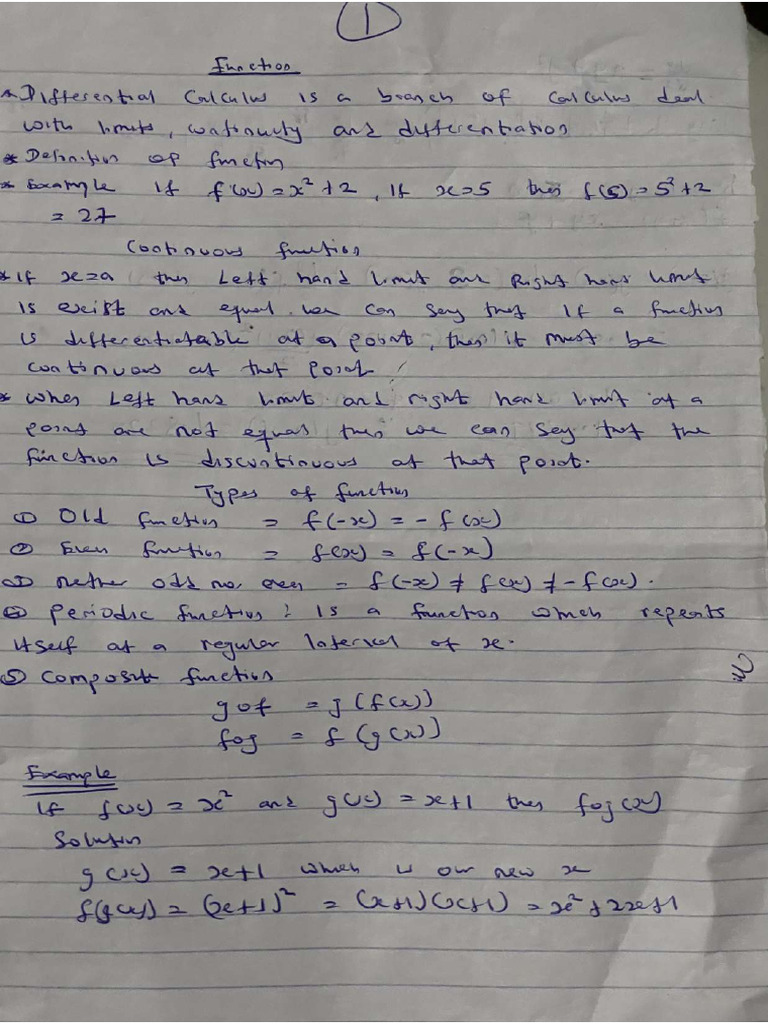 1
Function
* Differential Calculus is a branch of calculus deal
with limits, continuity and differentiation
* Definition of function
* Example If f(x) = x² + 2, If x=5 then f(5) = 5² + 2
= 27
Continuous function
* If x=a then Left hand limit and Right hand limit
is exist and equal we can say that if a function
is differentiatable at a point, then it must be
continuous at that point
* When Left hand limit and right hand limit at a
point are not equal then we can say that the
function is discontinuous at that point.
Types of function
① Old function = f(-x) = -f(x)
② Even function = f(x) = f(-x)
③ neither odd no even = f(-x) ≠ f(x) ≠ -f(x).
④ Periodic function : Is a function which repeats
itself at a regular interval of x.
⑤ Composite function
gof = g(f(x))
fog = f(g(x))
Example
If f(x) = x² and g(x) = x+1 then fog(x)
Solution
g(x) = x+1 which is our new x
f(g(x)) = (x+1)² = (x+1)(x+1) = x²+2x+1